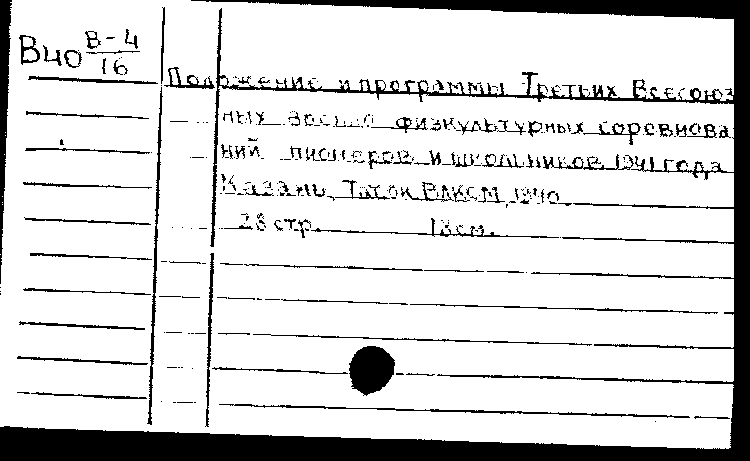 Вчо В-4
16
Положение и программы Третьих Всесоюз
ных военно физкультурных соревнова
ний пионеров и школьников 1941 года
Казань, Таток ВЛКСМ, 1940.
28 стр. 18 см.